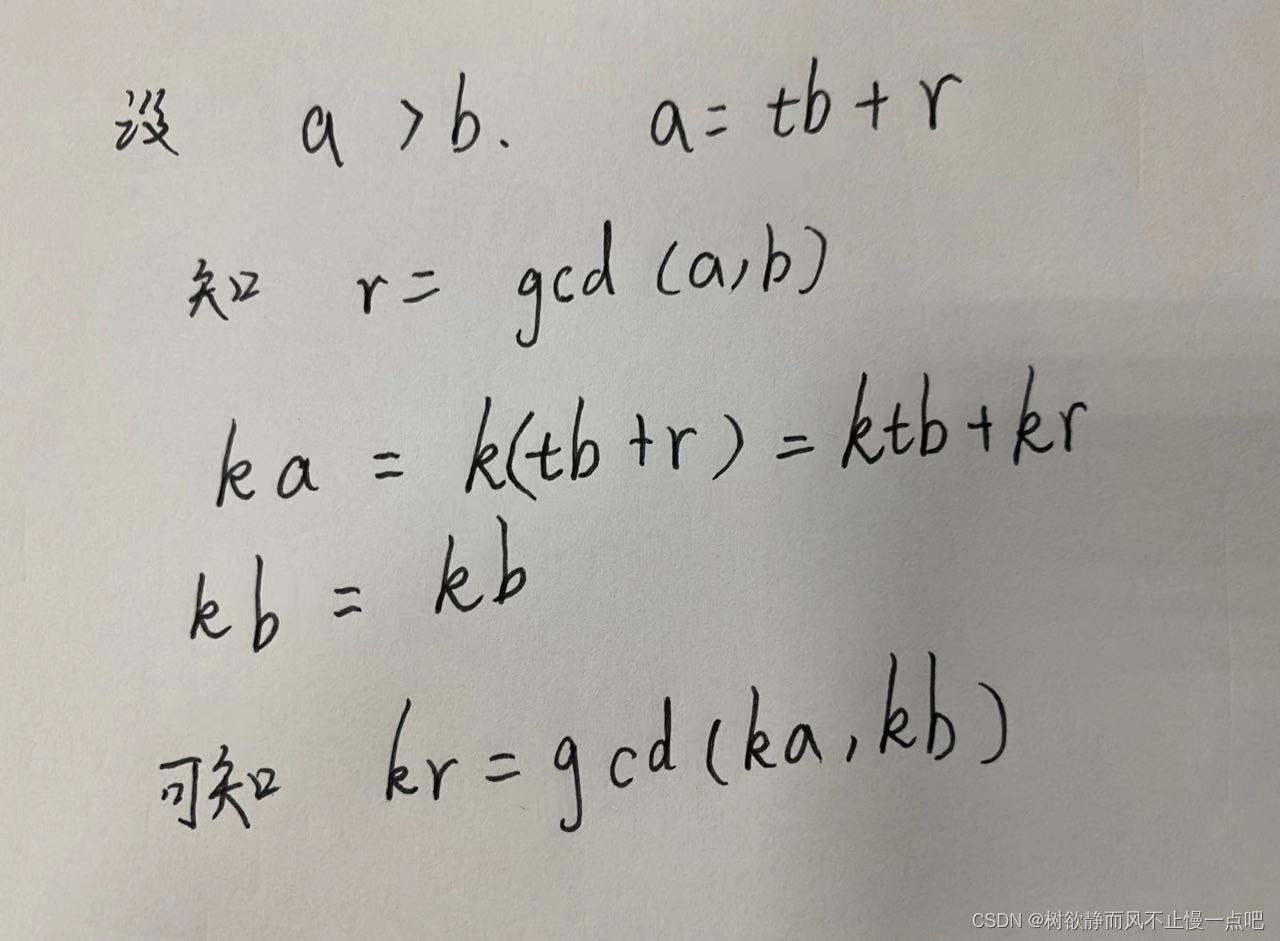 设 a > b. a = tb + r
知 r = gcd (a,b)
ka = k(tb + r) = ktb + kr
kb = kb
可知 kr = gcd (ka, kb)
CSDN @树欲静而风不止慢一点吧